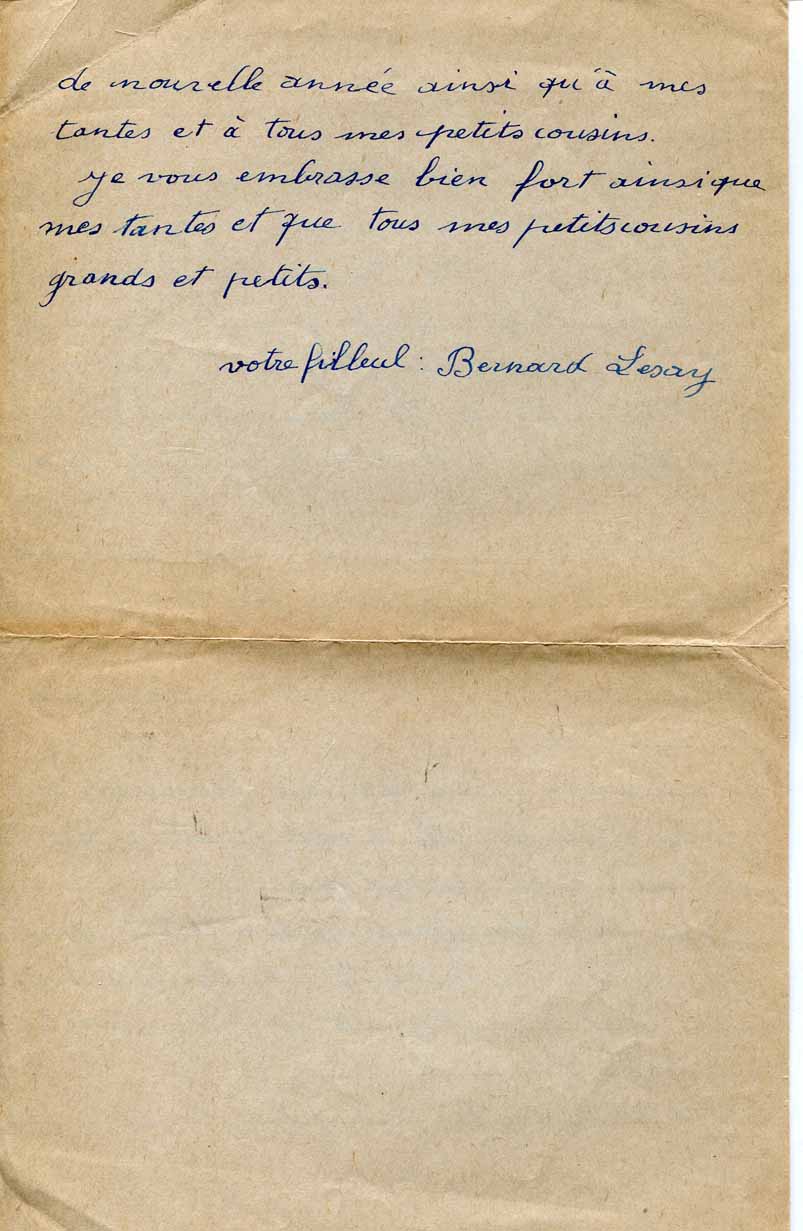 de nouvelle année ainsi qu'à mes
tantes et à tous mes petits cousins.
Je vous embrasse bien fort ainsi que
mes tantes et que tous mes petits cousins
grands et petits.
votre filleul : Bernard Lesay